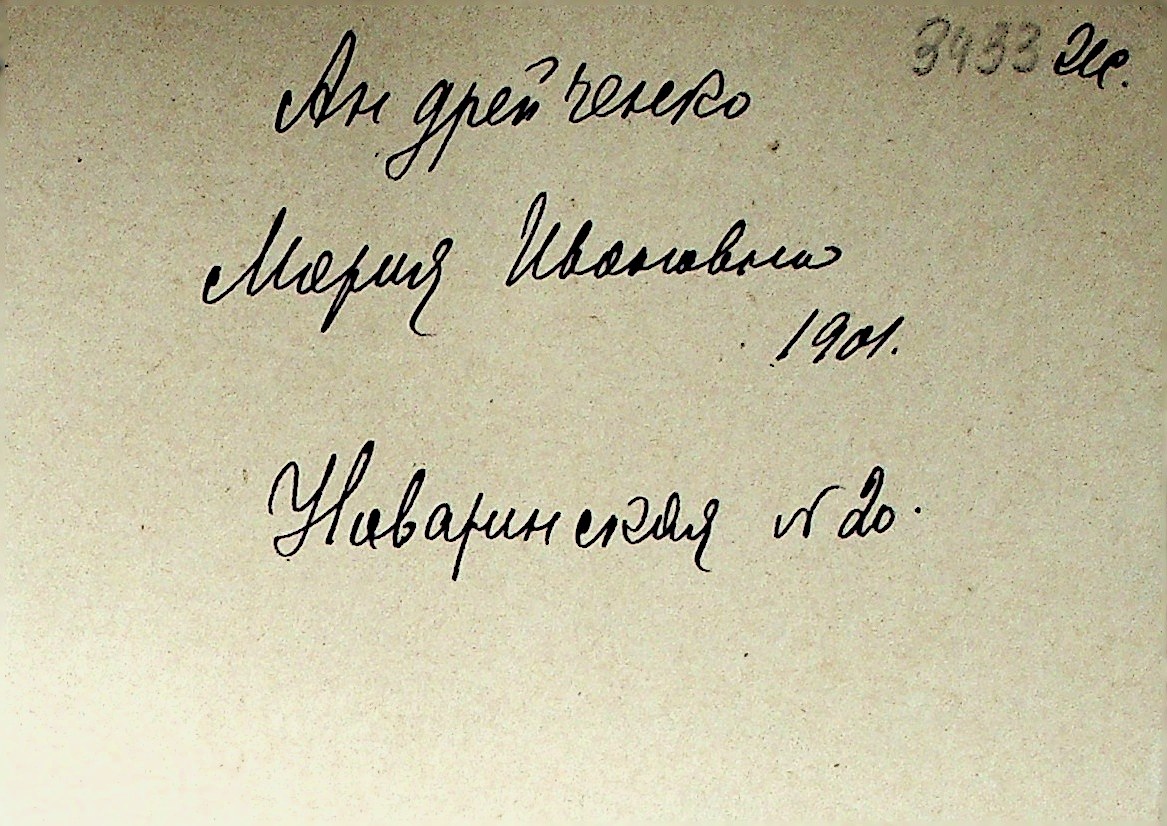 3433 Ж.
Андрейченко
Мария Ивановна
1901.
Наваринская № 20.